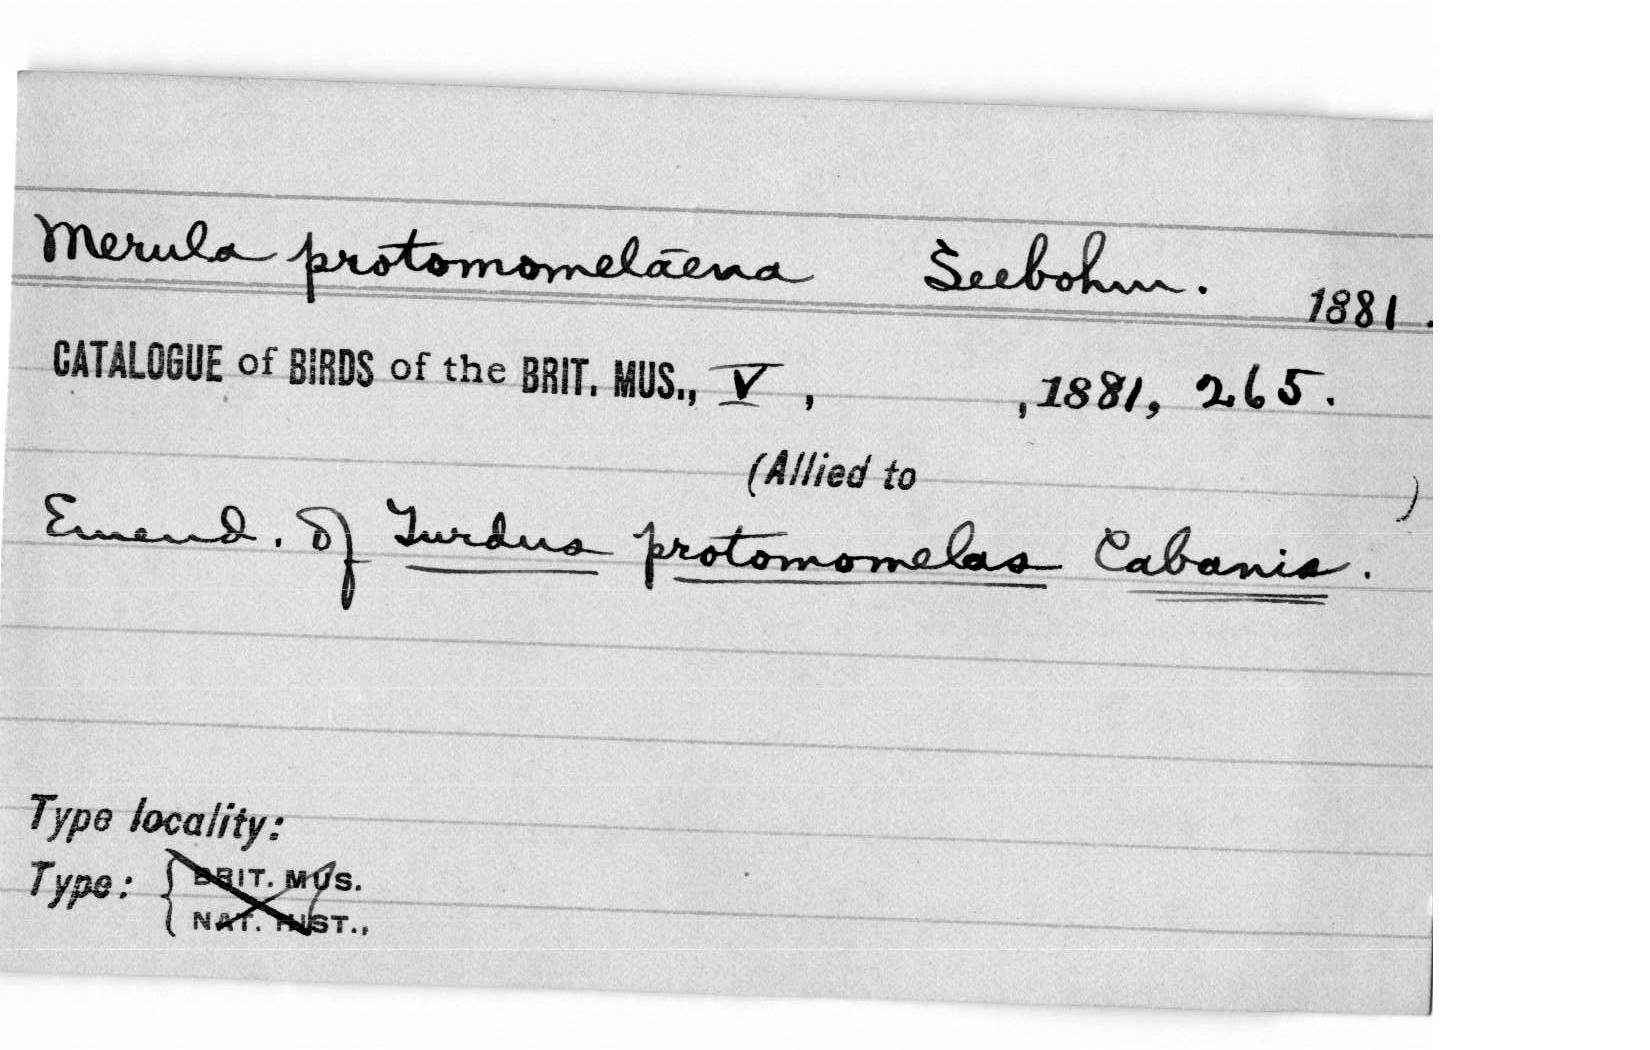 Merula protomomelaena Seebohm. 1881.
CATALOGUE of BIRDS of the BRIT. MUS., V, ,1881, 265.
(Allied to )
Emend. of Turdus protomomelas Cabanis.
Type locality:
Type: { BRIT. MUS.
NAT. HIST.,